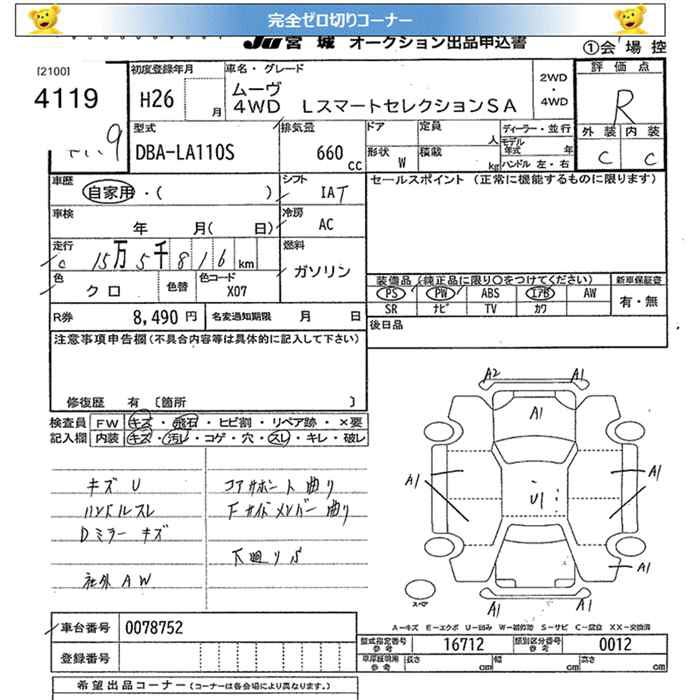 完全ゼロ切りコーナー
JU 宮城 オークション出品申込書 ①会場控
[2100]
4119
初度登録年月 H26 月
車名・グレード ムーヴ
4WD LスマートセレクションSA
2WD・4WD
評価点 R
外装 C 内装 C
型式 DBA-LA110S
排気量 660 cc
ドア 定員 人
形状 W 積載 kg
ディーラー・並行
モデル年式 年
ハンドル 左・右
車歴 自家用・( )
シフト IAT
セールスポイント (正常に機能するものに限ります)
車検 年 月( 日)
冷房 AC
走行 c 15万5千816 km
燃料 ガソリン
色 クロ 色替 色コード X07
装備品 (純正品に限り○をつけてください) 新車保証書
PS PW ABS エアB AW 有・無
SR ナビ TV カワ
R券 8,490円 名変通知期限 月 日
後日品
注意事項申告欄(不具合内容等は具体的に記入して下さい)
修復歴 有 〔箇所 〕
検査員 FW キズ・飛石・ヒビ割・リペア跡・×要
記入欄 内装 キズ・汚レ・コゲ・穴・スレ・キレ・破レ
キズ U
ハンドルスレ
Dミラー キズ
社外 AW
コアサポート曲り
Fサイドメンバー曲り
下廻りS
A2 A1
A1
A1 A1
U1
A1
A1 A1
スペア
A－キズ E－エクボ U－凹み W－補修跡 S－サビ C－腐食 XX－交換済
車台番号 0078752
型式指定番号 参考 16712 類別区分番号 参考 0012
登録番号
車庫証明用 参考 長さ cm 幅 cm 高さ cm
希望出品コーナー (コーナーは各会場により異なります。)